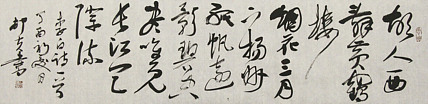 故人西
辞黄鹤
楼
烟花三月
下扬州
孤帆远
影碧空
尽唯见
长江天
际流
李白诗一首